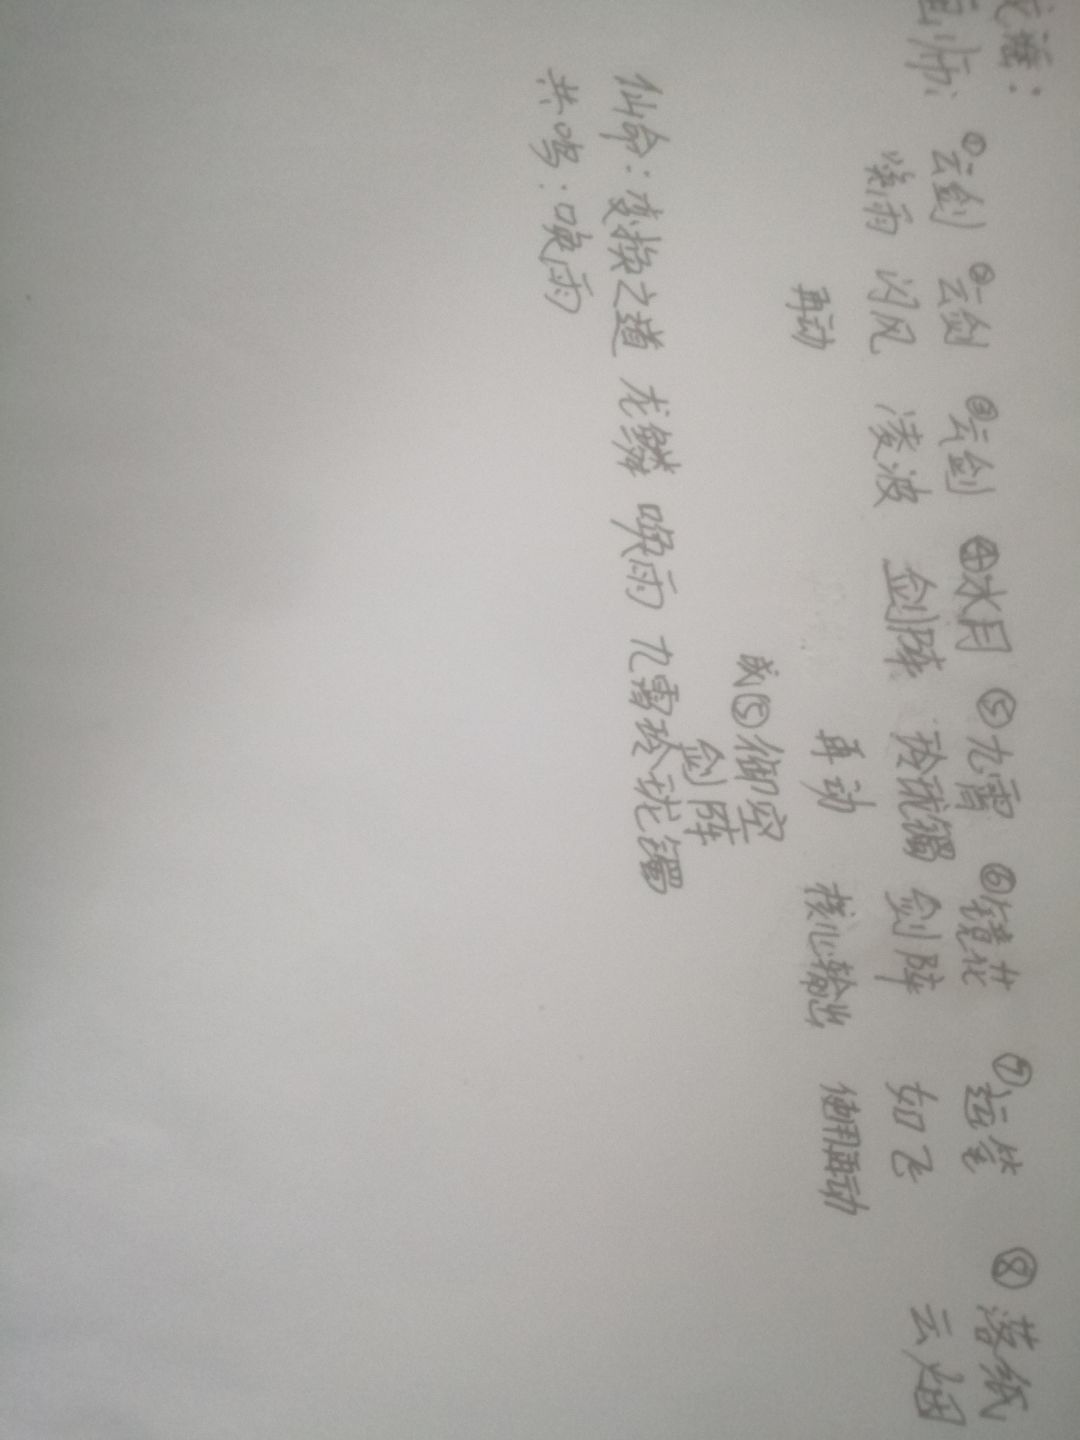 画师: ①云剑 ②云剑 ③云剑 ④水月 ⑤九霄 ⑥镜花 ⑦运笔 ⑧落纸
紫雨 闪风 凌波 剑阵 玲珑镯 剑阵 如飞 云烟
再动 再动 核心输出 使用再动
或⑤御空
剑阵
仙命:变换之道 龙鳞 唤雨 九霄玲珑镯
共鸣:唤雨